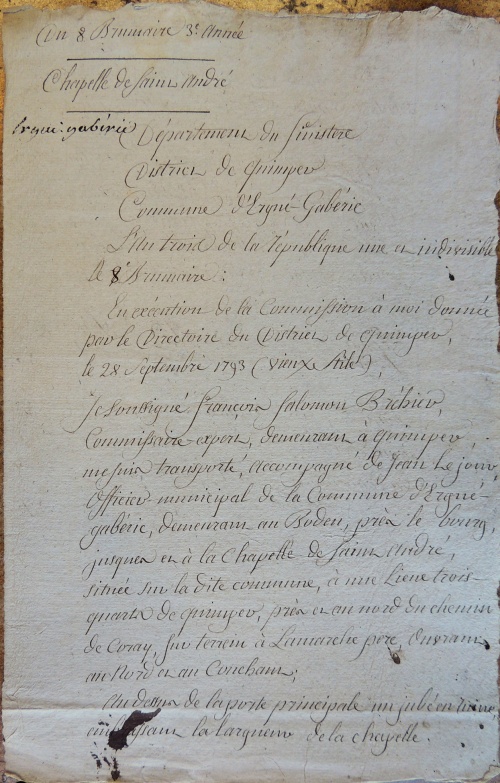 Du 8 Brumaire 3e. année
Chapelle de Saint André
Ergué-gabéric
Département du finistere
District de quimper
Commune d'Ergué-Gabéric
L'an trois de la république une et indivisible
le 8 Brumaire :
En exécution de la Commission à moi donnée
par le Directoire du District de quimper,
le 28 Septembre 1793 (vieux stile),
Je soussigné françois Salomon Bréhier,
Commissaire expert, demeurant à quimper,
me suis transporté, accompagné de Jean Le jour
officier municipal de la Commune d'Ergué-
gabéric, demeurant au Boden, près le bourg,
jusques et à la Chapelle de Saint André,
située sur la dite commune, à une Lieue trois-
quarts de quimper, près et au nord du chemin
de Coray, sur terrein à Lamarche père, ouvrant
au Nord et au Couchant;
Au dessus de la porte principale un jubé en
la largeur de la chapelle.